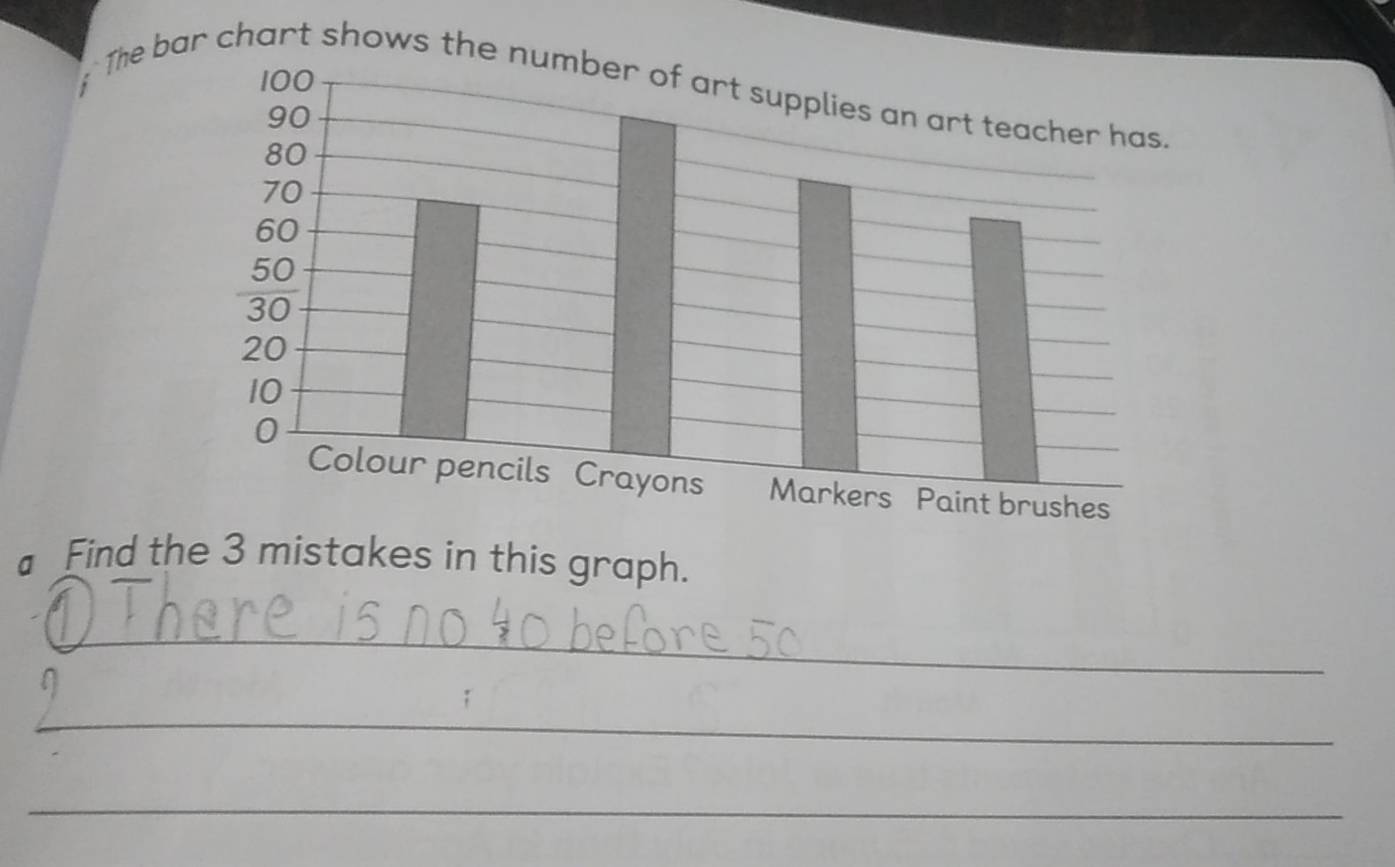 The bar chart shows the number of art supplies an art teacher has.
100
90
80
70
60
50
30
20
10
0
Colour pencils Crayons Markers Paint brushes
a Find the 3 mistakes in this graph.
① There is no 40 before 50
2